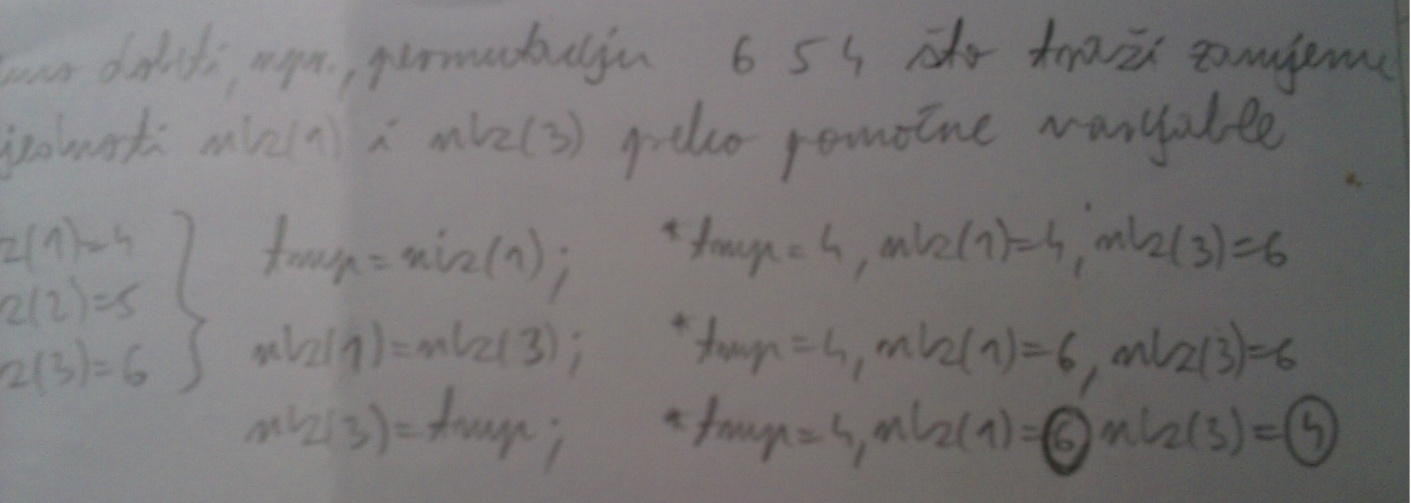 dobiti, npr., permutaciju 6 5 4 što traži zamjenu
jednosti niz(1) i niz(3) preko pomoćne varijable
z(1)=4 } tmp=niz(1); *tmp=4, niz(1)=4, niz(3)=6
z(2)=5
z(3)=6 niz(1)=niz(3); *tmp=4, niz(1)=6, niz(3)=6
niz(3)=tmp; *tmp=4, niz(1)=6 niz(3)=4